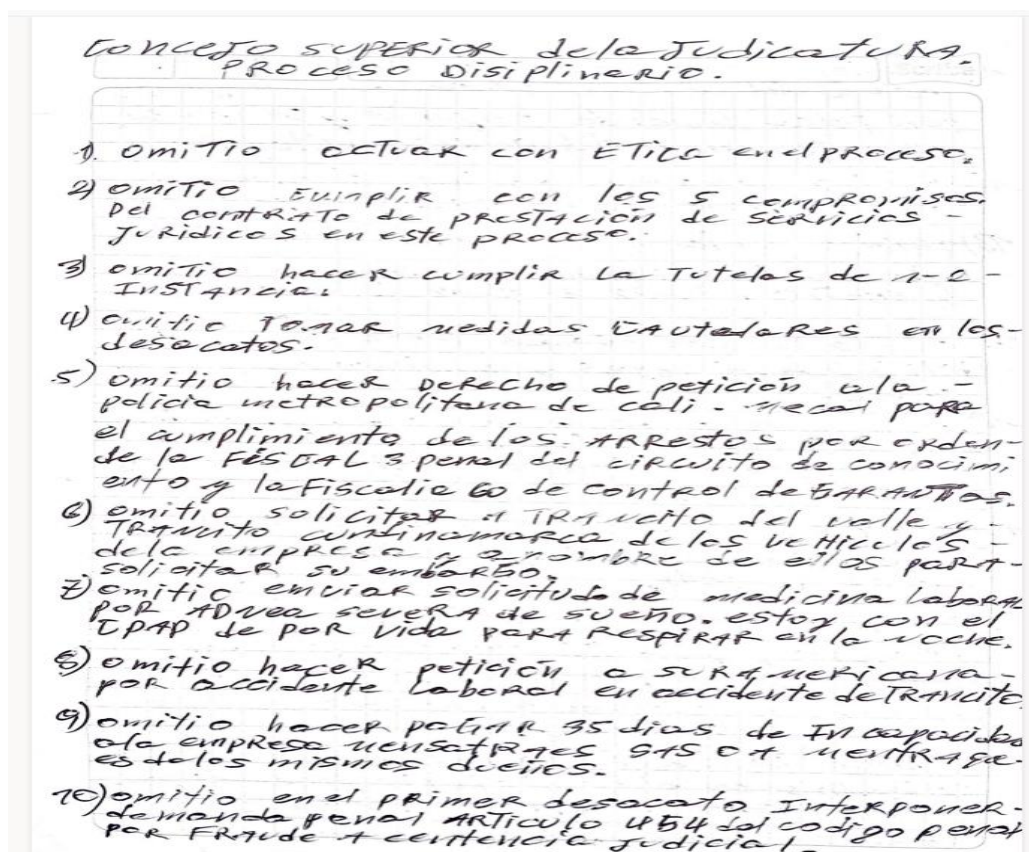 Concejo superior de la Judicatura.
Proceso Disiplinerio.
1. omitio actuar con Etica en el proceso.
2) omitio cumplir con los 5 compromisos.
Del contrato de prestación de servicios -
Juridicos en este proceso.
3) omitio hacer cumplir la Tutelas de 1-2-
Instancia.
4) omitio Tomar medidas cautelares en los-
desacatos.
5) omitio hacer Derecho de petición a la -
policia metropolitana de cali. mecal para
el cumplimiento de los arrestos por orden-
de la Fiscal 3 penal del circuito de conocimi
ento y la Fiscalia 60 de control de Garantias.
6) omitio solicitar a Trancito del valle y-
Trancito cundinamarca de los vehiculos -
de la empresa y a nombre de ellos para-
solicitar su embargo.
7) omitio enviar solicitud de medicina laboral
por Adnea severa de sueño. estoy con el
CPAP de por vida para respirar en la noche.
8) omitio hacer petición a suramericana-
por accidente laboral en accidente de Trancito
9) omitio hacer pagar 35 dias de Incapacidad
a la empresa mensatrages SAS
es de los mismos dueños.
10) omitio en el primer desacato Interponer-
demanda penal Articulo 454 del codigo penal
por Fraude a centencia judicial.